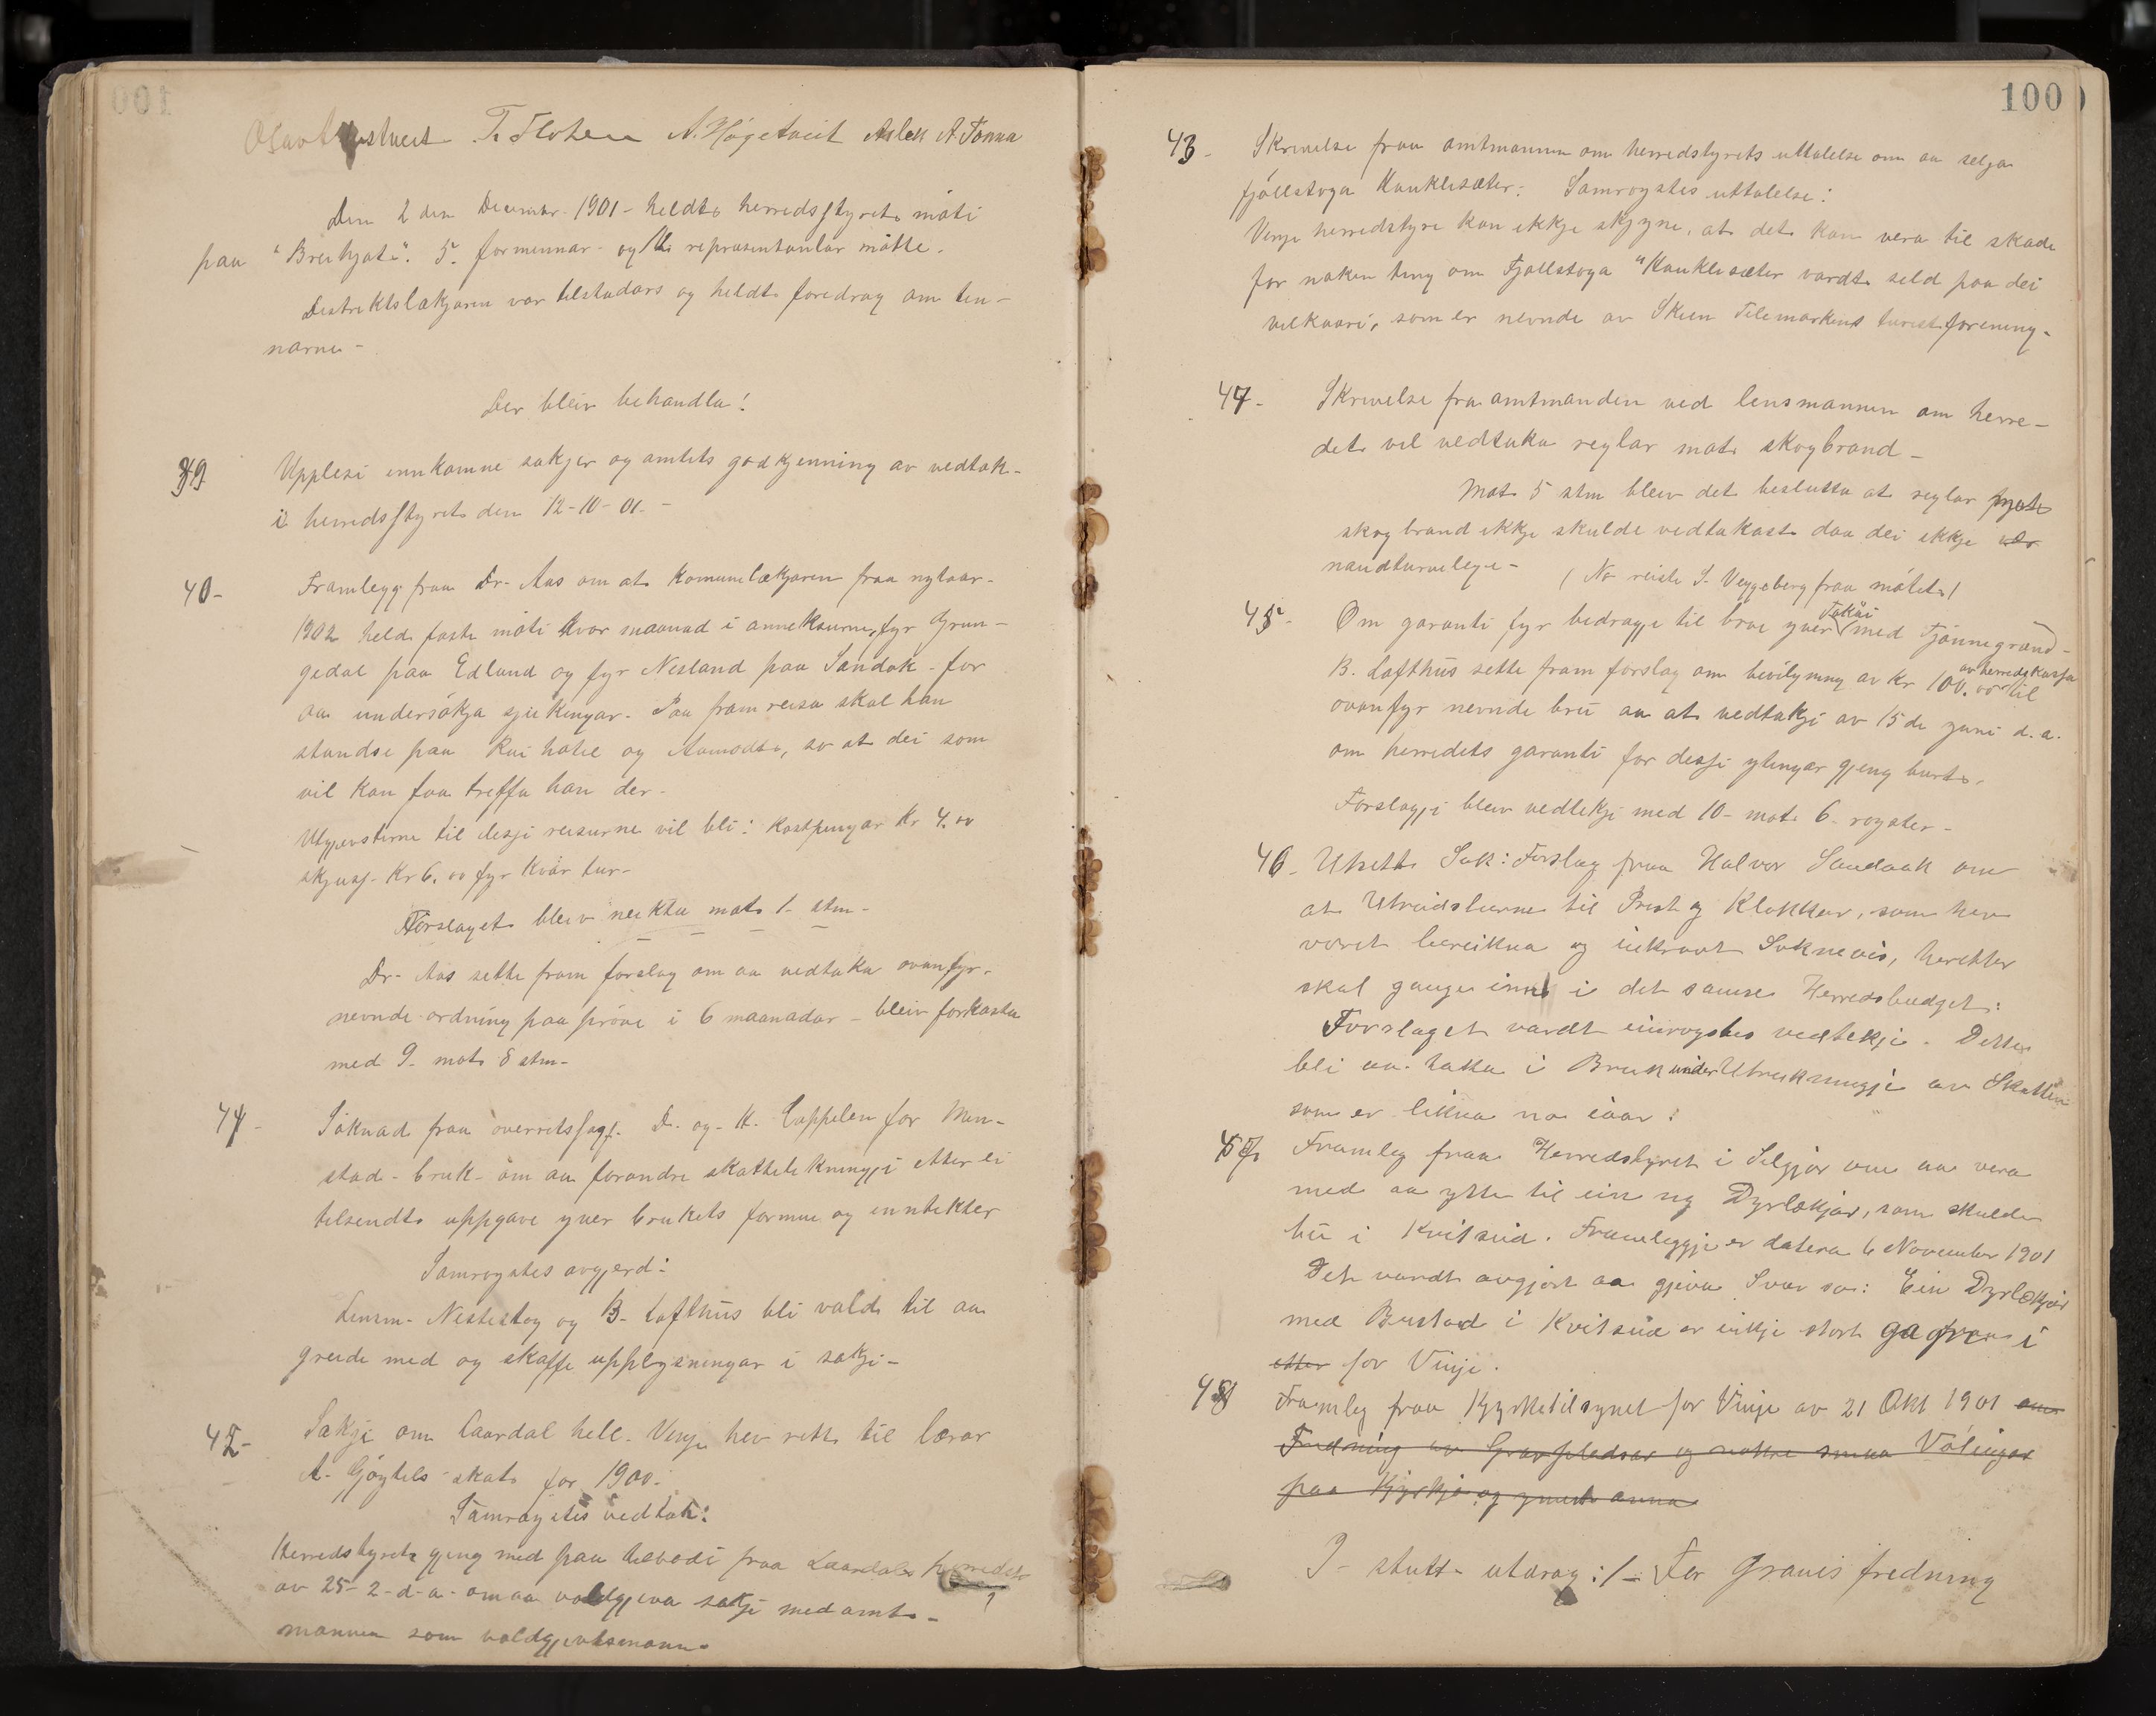 T. Flothen N. Høgetveit Aslak A. Tonna
Den 2 den December 1901 - heldt herredsstyret möti
paa "Breihjat". 5. formennar og representantar mötte.
Distriktslækjaren var tilstadars og heldt foredrag om ten-
narne -
Der bleiv behandla!
39 Upplesi innkomne sakjer og amtets godkjenning av vedtak
i herredsstyret den 12-10-01. -
40 - Framlegg fraa Dr. Aas om at Komunelækjaren fraa nyttaar -
1902 held faste möti kvar maanad i anneksurne, fyr Grun-
gedal paa Edland og fyr Nesland paa Sandok - for
aa undersökja sjukingar. Paa framreisa skal han
standse paa Rui hotel og Aamodt, so at dei som
vil kan faa treffa han der.
Utgjevsterne til desji reisurne vil bli: Kostpengar Kr 4.00
skjuss. Kr 6.00 fyr kvar tur -
Forslaget bleiv neikta mot 1 - stm -
Dr. Aas sette fram forslag om aa vedtaka ovanfyr-
nevnde ordning paa pröve i 6 maanadar - bleiv forkasta
med 9 - mot 8 stm -
41 - Söknad fraa overretssagf. D. og H. Cappelen for Men-
stad - bruk - om aa forandre skatteliknungji etter ei
tilsendt uppgave yver brukets formue og inntekter
Samrøystes avgjerd:
Lensm. Nestestog og B. Lofthus bli vald til aa
greide med og skaffe upplysningar i sakji -
42 - Sakji om Laardal hell. Vinje hev rett til lærar
A. Gjøytils skat for 1900.
Samrøystes vedtak:
Herredstyret gjeng med paa tilbodi fraa Laardals herredst
av 25-2-d-a - om aa voldgjeva sakji med amt-
mannen som voldgjevtsmann -
100
43 - Skrivelse fraa amtmannen om herredstyrets uttalelse om aa selja
fjöllstoga Haukliseter: Samrøystes uttalelse:
Vinje herredstyre kan ikkje skjyne, at det kan vera til skade
for noken ting om Fjøllstoga "Haukliseter vardt seld paa dei
vilkaari, som er nevnde av Skien Telemarkens turistforening -
44 - Skrivelse fra amtmanden ved lensmannen om herre-
det vil vedtaka reglar mot skogbrand -
Mot 5 stm bleiv det beslutta at reglar
skogbrand ikkje skulde vedtakast daa dei ikkje var
naudturvelege - (No reiste S. Veggeberg fraa mötet)
45 - Om garanti fyr bedragje til brue yver Tokäi med Tjönnegrand -
B. Lofthus sette fram forslag om bevilgning av Kr 100.00 av herredskassa til
ovanfyr nevnde bru aa at vedtakji av 15 de juni d. a.
om herredets garanti for desse ytingar gjeng burt.
Forslagji bleiv vedtekji med 10 - mot 6 - røyster -
46 - Utsett Sak: Forslag fraa Halvor Sandaak om
at Utreidslurne til Prest og Klokkar, som hev
voret bereikna og inkravt Soknevis, heretter
skal gange inn i det samse Herredsbudget:
Forslaget vardt einrøystes vedtekje. Dette
bli aa taka i Bruk under Utreikningji av Skatten
som er likna no iaar:
47 Framleg fraa Herredstyret i Seljor om aa vera
med aa ytte til ein ny Dyrlækjar, som skulde
bu i Kvitseid. Framleggje er datera 6 November 1901
Det vardt avgjort aa gjeva Svar so: Ein Dyrlækjar
med Bustad i Kvitseid er inkje stort gagn i
etter for Vinje.
48 Framleg fraa Kyrketilsynet for Vinje av 21 Okt 1901 om
Fredning av Gravpladsar og nokre smaa Völingar
paa Kyrkje og ymist anna
I stutt utdrag :/- Før Gravis fredning